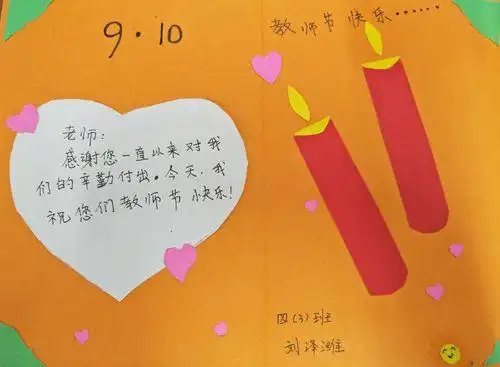 9·10
教师节快乐……
老师：
感谢您一直以来对我
们的辛勤付出。今天，我
祝您们教师节快乐！
四（3）班
刘泽潍